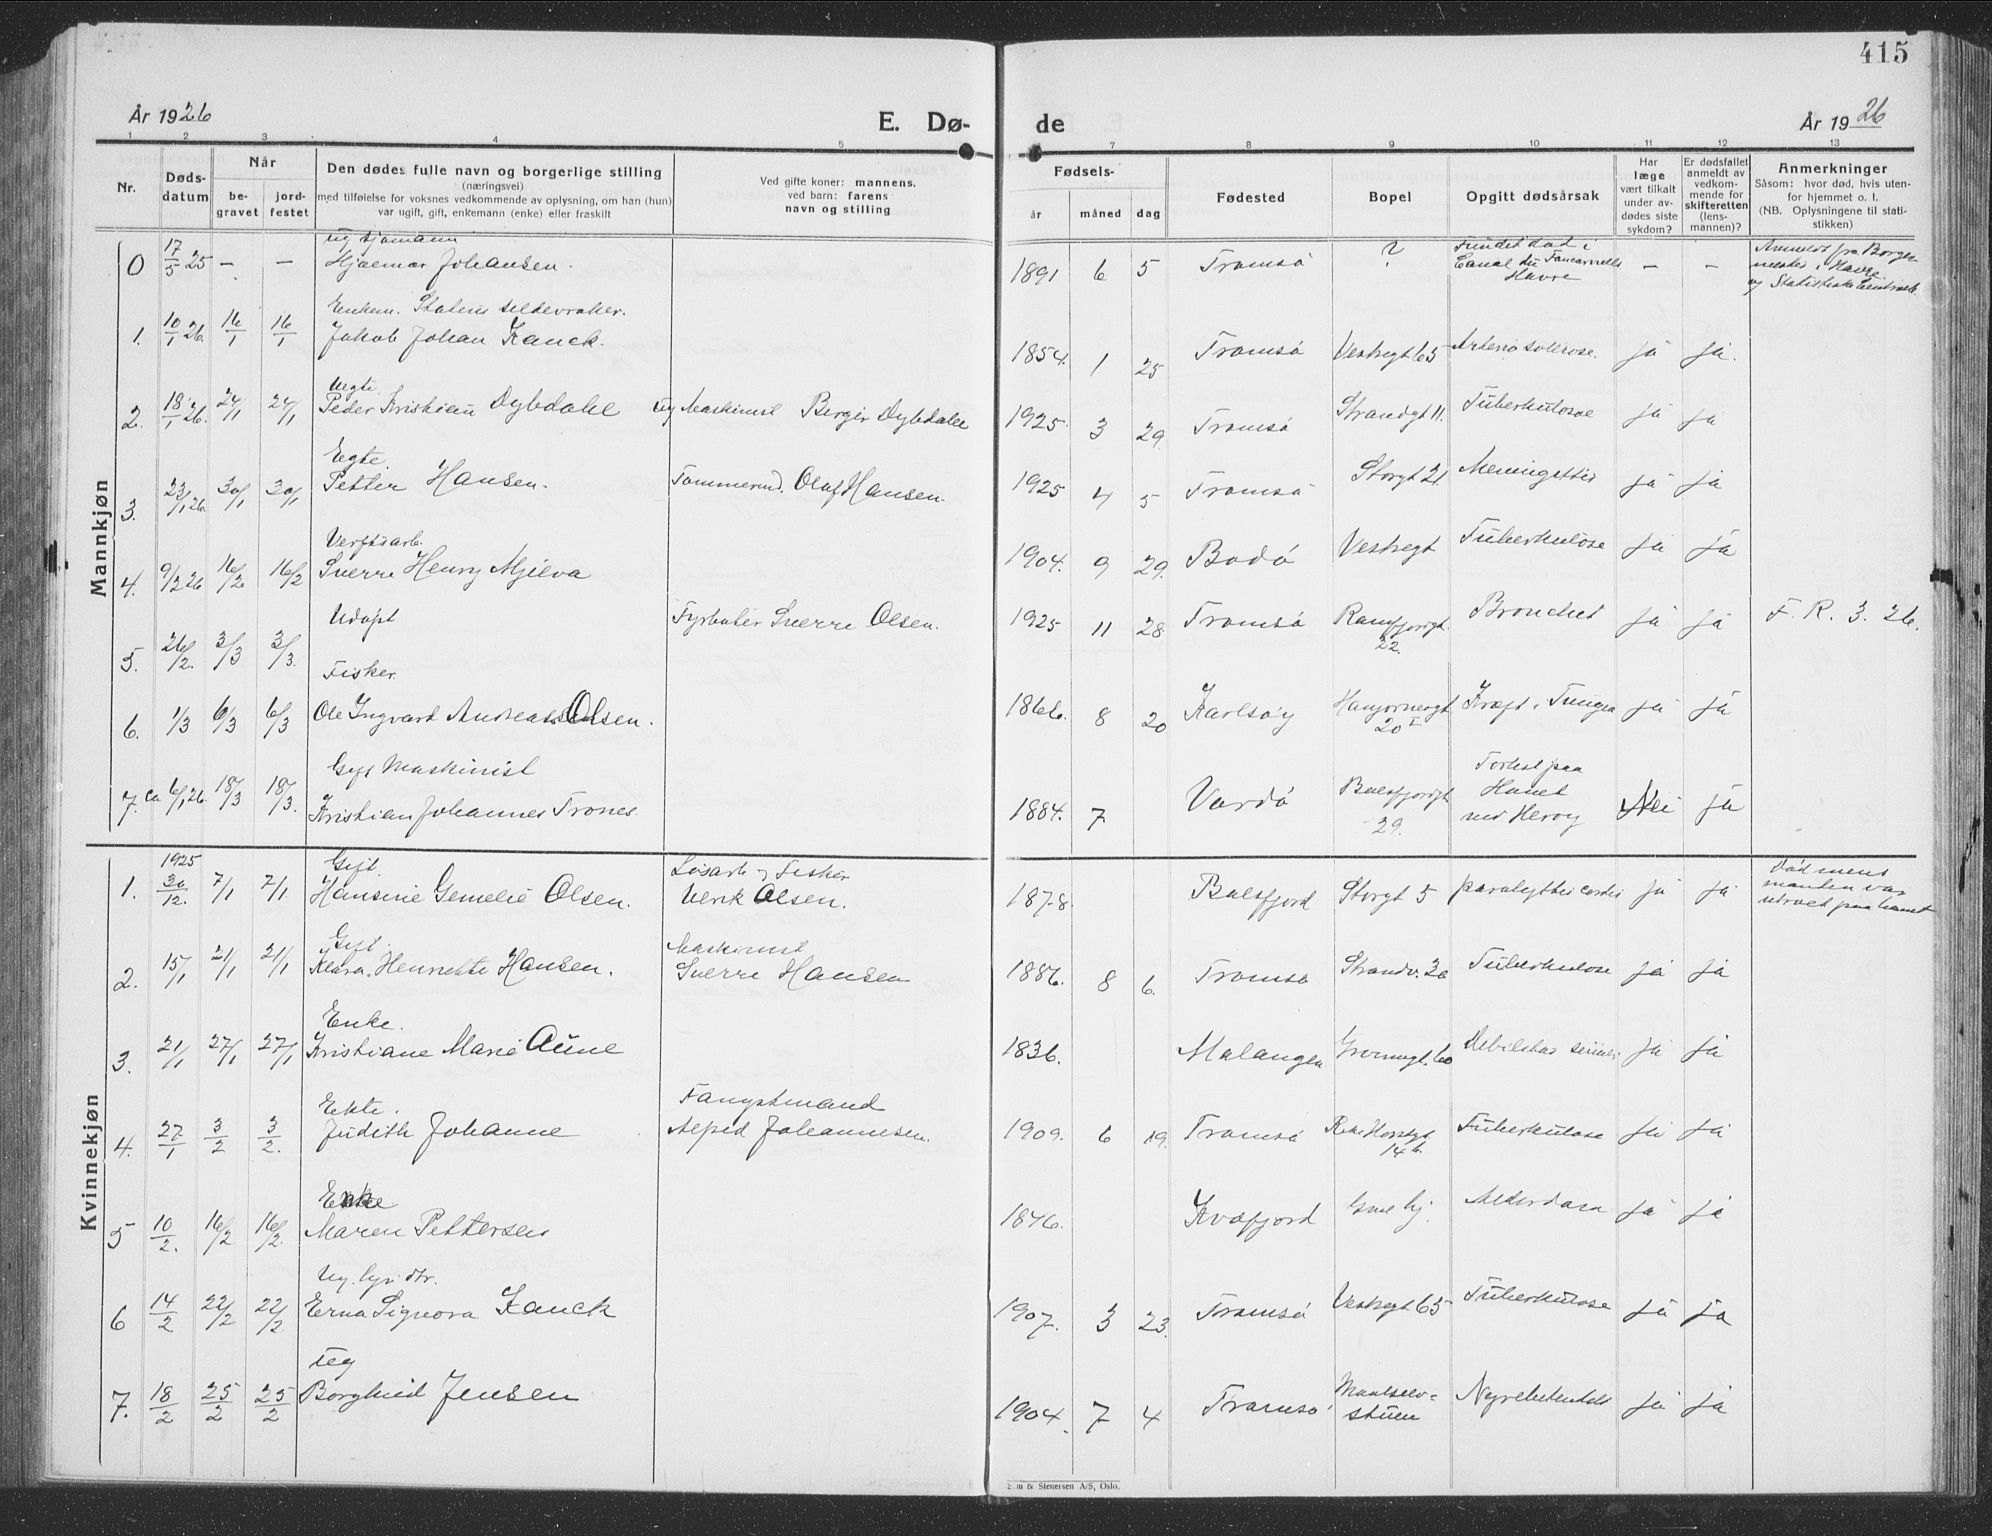 415
År 1926
E. Dø-
de
År 1926
1 2 3 4 5 7 8 9 10 11 12 13
Nr.
Døds-
datum
Når
be-
gravet
jord-
festet
Den dødes fulle navn og borgerlige stilling
(næringsvei)
med tilføielse for voksnes vedkommende av oplysning, om han (hun)
var ugift, gift, enkemann (enke) eller fraskilt
Ved gifte koner: mannens,
ved barn: farens
navn og stilling
Fødsels-
år
måned
dag
Fødested
Bopel
Opgitt dødsårsak
Har
læge
vært tilkalt
under av-
dødes siste
sykdom?
Er dødsfallet
anmeldt av
vedkom-
mende for
skifteretten
(lens-
mannen)?
Anmerkninger
Såsom: hvor død, hvis uten-
for hjemmet o. l.
(NB. Oplysningene til stati-
stikken)
Mannkjøn
Ug sjømann
0 17/5 25 – – Hjalmar Johansen. 1891 6 5 Tromsø ? Fundet død i
Canal du Havre – – Anmeldt fra
i Havre
og Statistiske
Enkem. Statens sildevraker.
1. 10/1 26. 16/1 16/1 Jakob Johan Kanck. 1854. 1 25 Tromsø Vestregt 65 ja ja.
Uegte.
2. 18/1 26. 24/1 24/1 Peder Kristian Dybdahl Ug Maskinist Birger Dybdahl 1925. 3 29. Tromsø Strandgt 11. Tuberkulose ja ja
Egte.
3. 23/1 26. 30/1 30/1 Petter Hansen. Tømmermd. Olaf Hansen. 1925 4 5 Tromsø Storgt 21. ja ja
Verftsarb.
4. 9/2 26 16/2 16/2 Sverre Henry Mjelva 1904. 9 29. Bodø Vestregt Tuberkulose ja ja
Udøpt
5. 26/2. 3/3 3/3. Fyrbøter Sverre Olsen. 1925 11 28 Tromsø Ramfjordgt.
22. Bronchit ja ja F. R. 3. 26.
Fisker.
6. 1/3 6/3 6/3 Ole Ingvard Andreas Olsen. 1866. 8 20 Karlsøy
20 Kræft i Tungen ja ja
Gift Maskinist
7. ca 6/1 26. 18/3 18/3. Kristian Johannes Trones. 1884. 7 Vardø Balsfjordgt
29. Forlist paa
Havet
ved Herøy Nei ja
Kvinnekjøn
1925
Gift.
1. 30/12. 7/1 7/1 Hansine Olsen. Løsarb og Fisker
Ulrik Olsen. 1878. Balsfjord Storgt 5 ja ja Død mens
manden var
utroet paa havet
Gift.
2. 15/1 21/1 21/1 Klara Henriette Hansen. Maskinist
Sverre Hansen 1886. 8 6. Tromsø Strandv. 30 Tuberkulose ja ja
Enke.
3. 21/1 27/1 27/1 Kristiane Marie Aune 1836. Malangen Grønnegt. 60 ja ja
Ekte.
4. 27/1 3/2 3/2. Judith Johanne Fangstmand
Alfred Johannesen. 1909. 6 19. Tromsø
14 b. Tuberkulose ja ja
Enke
5 10/2. 16/2 16/2. Maren Pettersen 1846. Kvæfjord ja ja
Ug.
6 14/2 22/2 22/2. Erna Signora Kanck 1907. 3 23. Tromsø Vestregt 65 Tuberkulose ja ja
Ug
7. 18/2 25/2 25/2 Borghild Jensen 1904. 7 4 Tromsø Maalselv-
stuen ja ja
& Stenersen A/S, Oslo.